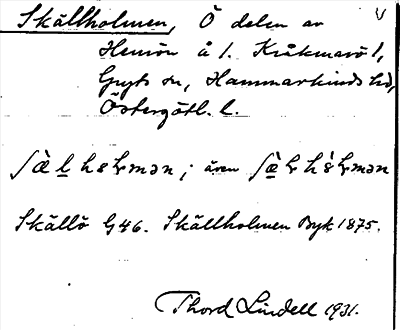 Skällholmen, Ö delen av
Hemön å l. Kråkmarö l,
Gryts sn, Hammarkinds hd,
Östergötl. l.
även
Skällö G46. Skällholmen Byk 1875.
Thord Lindell 1931.